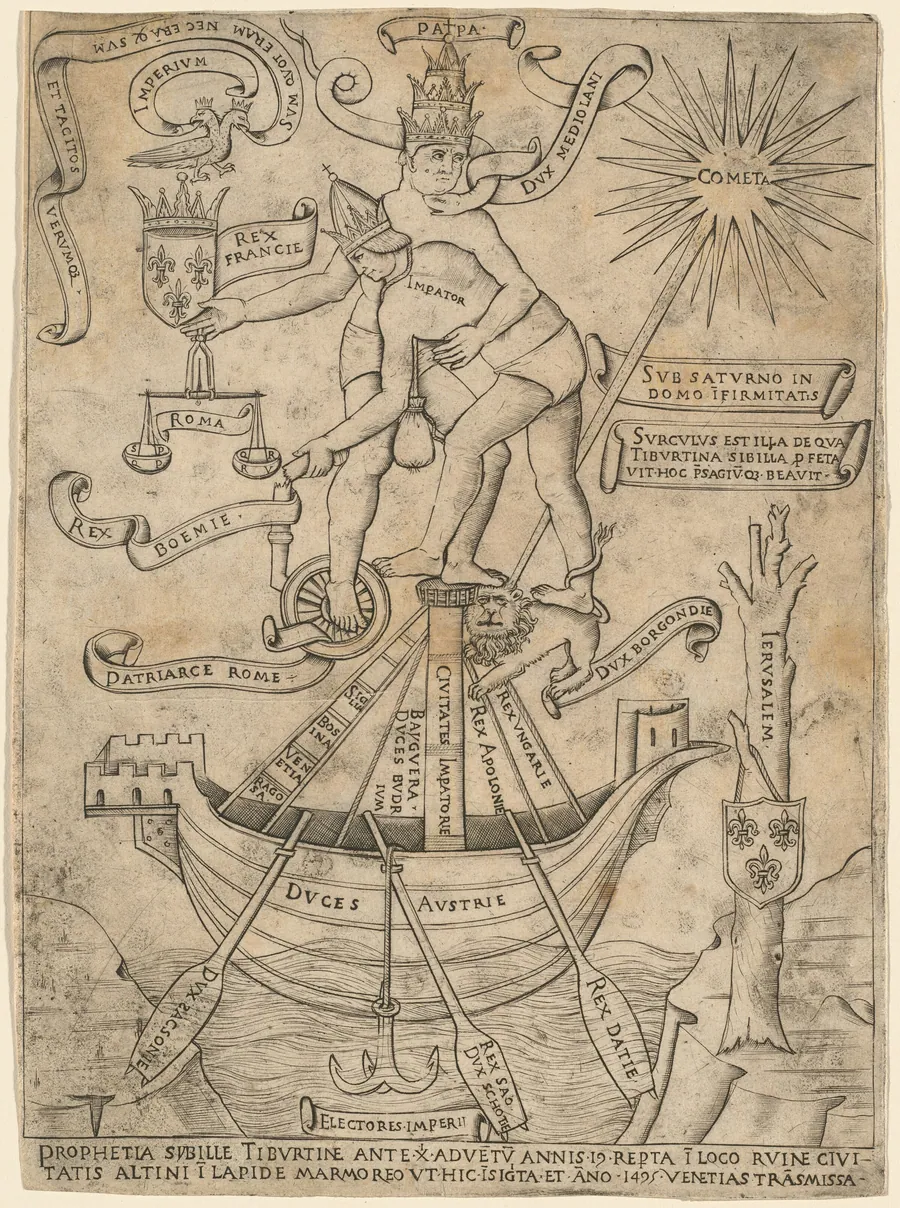 PATPA·
SVM QVOT ERAM NEC ERĀ Q̄ SVM
ET TACITOS
VERVMQZ
IMPERIVM
DVX MEDIOLANI
COMETA
REX
FRANCIE
IMPATOR
SVB SATVRNO IN
DOMO ĪFIRMITATIS
ROMA
S P
Q P
Q R
R R
SVRCVLVS EST ILLA DE QVA
TIBVRTINA SIBILLA P FETA
VIT·HOC P̄SAGIV̄QZ·BEAVIT·
REX BOEMIE·
PATRIARCE ROME
DVX BORGONDIE
IERVSALEM.
SICI
LIA
BOS
INA
VEN
ETIA
RAGO
SA
BAVGVERA·
DVCES BVDR
IVM
CIVITATES IMPATORIE
REX APOLONIE
REX VNGARIE
DVCES AVSTRIE
DVX SACSONIE
REX SAO
DVX SCHOTIE
REX DATIE
ELECTORES·IMPERII
PROPHETIA SIBILLE TIBVRTINE ANTE·X̄·ADVĒTV̄ ANNIS·19·REPTA Ī LOCO RVINE CIVI-
TATIS ALTINI Ī LAPIDE MARMOREO VT·HIC·ĪSIGTA·ET·ĀNO·1495·VENETIAS TRĀSMISSA-